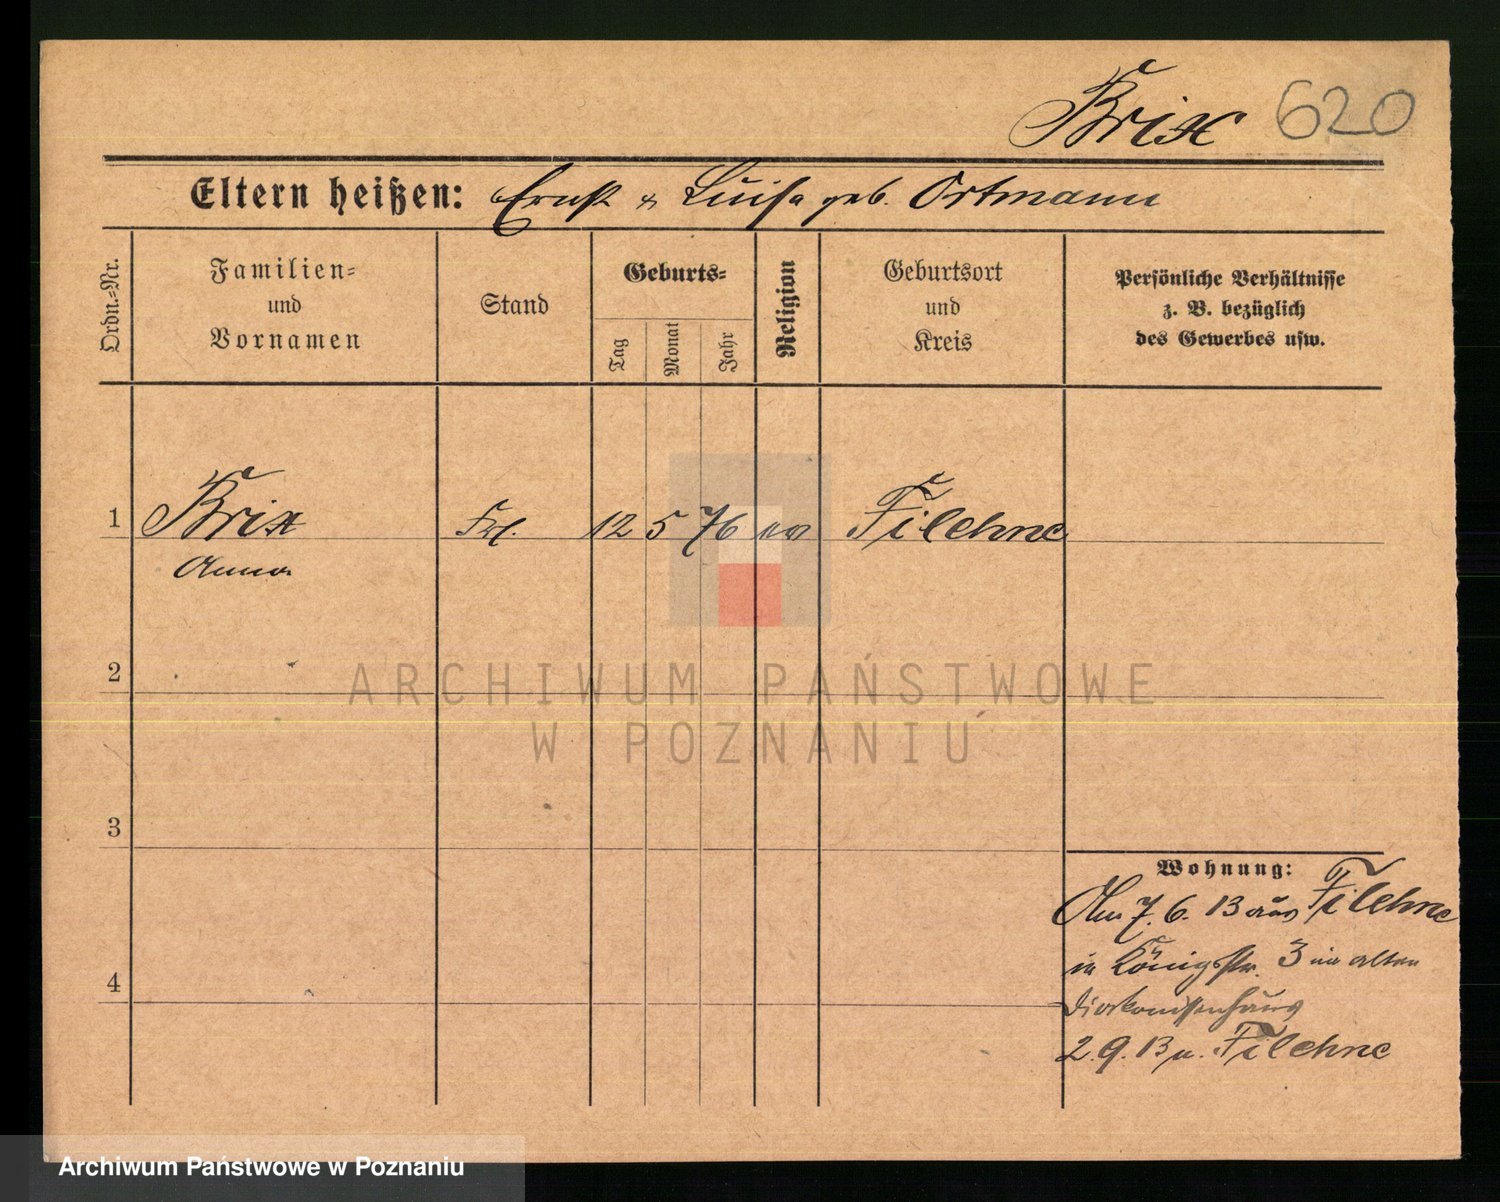 Brix 620
Eltern heißen: Ernst & Luise geb. Ortmann
Ordn.=Nr.
Familien=
und
Vornamen
Stand
Geburts=
Tag
Monat
Jahr
Religion
Geburtsort
und
Kreis
Persönliche Verhältnisse
z. B. bezüglich
des Gewerbes usw.
1 Brix Frl. 12 5 76 ev Filehne
Anna
2
ARCHIWUM PAŃSTWOWE
W POZNANIU
3
Wohnung:
7. 6. 13 aus Filehne
in Königstr. 3 im alten
4
Diakonissenhaus
2. 9. 13 n. Filehne
Archiwum Państwowe w Poznaniu